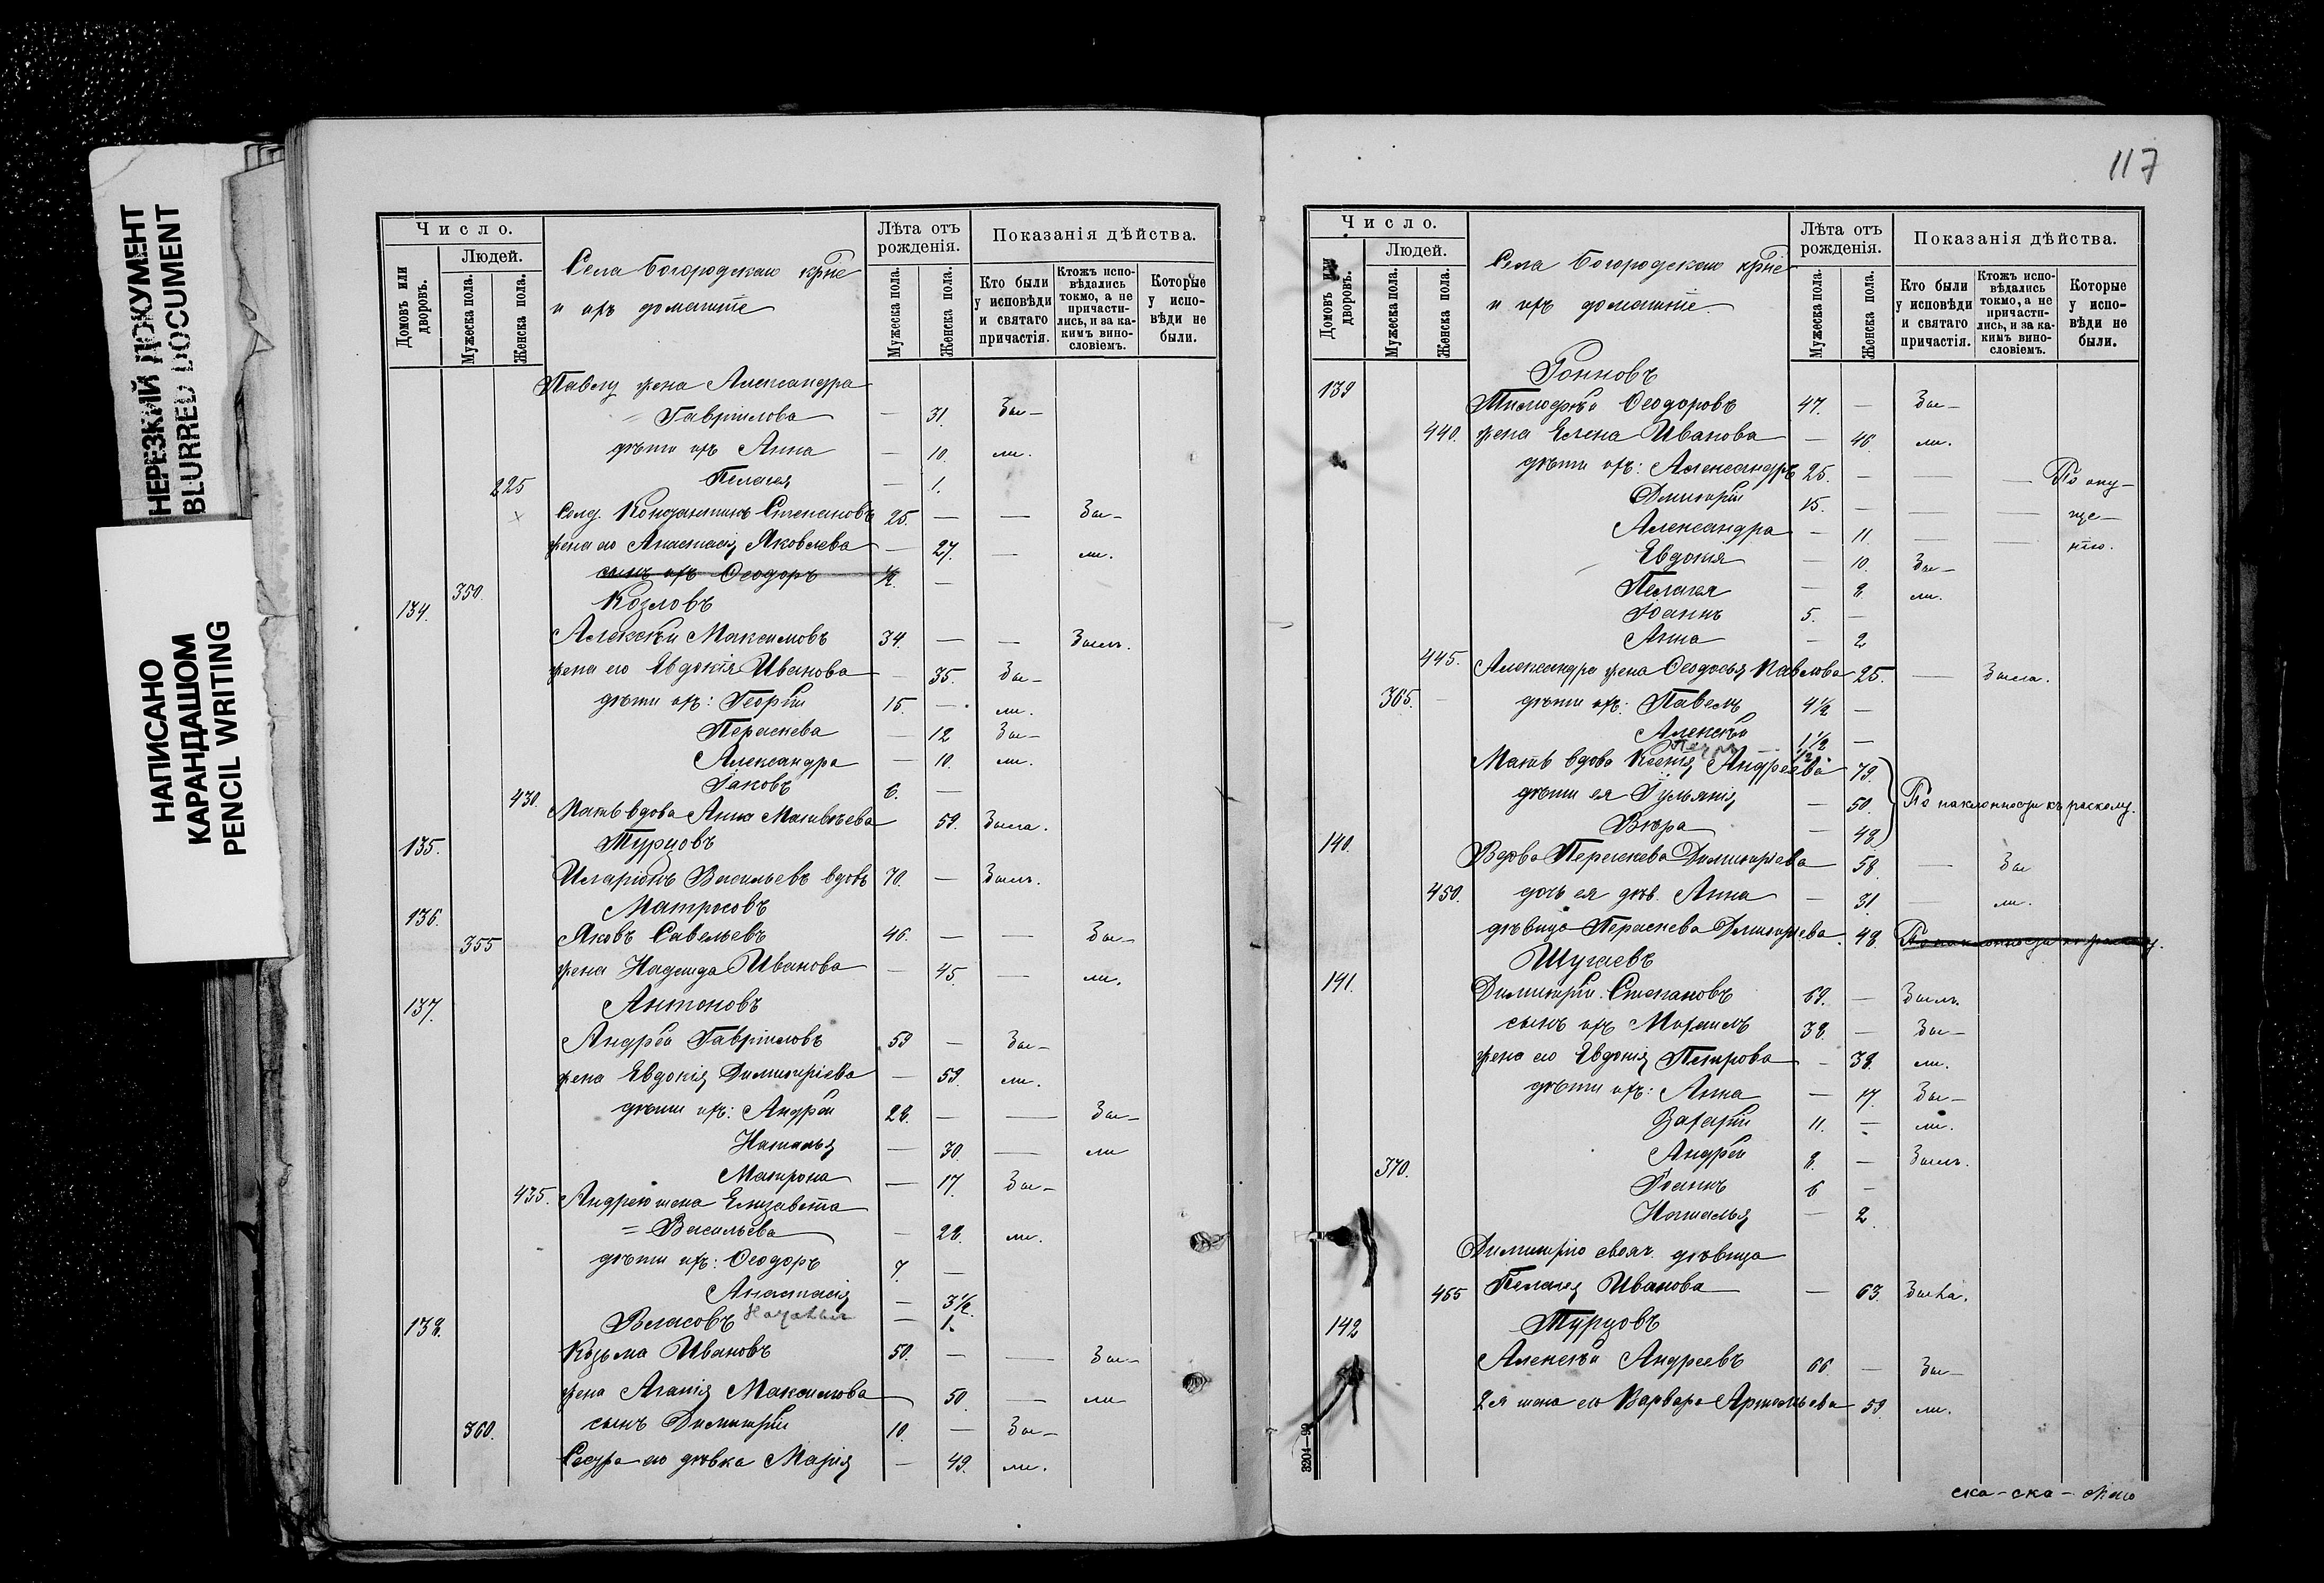 НЕРЕЗКИЙ ДОКУМЕНТ
BLURRED DOCUMENT
НАПИСАНО
КАРАНДАШОМ
PENCIL WRITING
Число.
Людей.
Домовъ или дворовъ.
Мужеска пола.
Женска пола.
Села Богородскаго крѣне
и ихъ домашніе
Лѣта отъ рожденія.
Мужеска пола.
Женска пола.
Показанія дѣйства.
Кто были у исповѣди и святаго причастія.
Ктожъ исповѣдались токмо, а не причастились, и за какимъ винословіемъ.
Которые у исповѣди не были.
Павлу жена Александра
= Гавріилова — 31. Бы-
дѣти ихъ Анна — 10. ли.
225 Пелагея — 1.
Солд. Константинъ Степановъ 25. — — Бы-
жена его Анастасія Яковлева — 27. — ли.
сынъ ихъ Ѳеодоръ ½ —
134. 350. Козловъ
Алексѣй Максимовъ 34. — — Былъ.
жена его Евдокія Иванова — 35. Бы-
дѣти ихъ: Георгій 15. — ли.
Параскева — 12 Бы-
Александра — 10. ли.
Іаковъ 6. —
430. Мать вдова Анна Матвѣева 59. Была.
135. Турцовъ
Иларіонъ Васильевъ вдовъ 70. — Былъ.
136. Матросовъ
355 Яковъ Савельевъ 46. — — Бы-
жена Надежда Иванова — 45. — ли.
137. Антоновъ
Андрей Гавріиловъ 59 — Бы-
жена Евдокія Димитріева — 59. ли.
дѣти ихъ: Андрей 28. — — Бы-
Наталья — 30. — ли
Матрона — 17. Бы-
435. Андрею жена Елизавета
= Васильева — 28. ли.
дѣти ихъ: Ѳеодоръ 7. —
Анастасія — 3½
138. Власовъ Наталья — 1.
Козьма Ивановъ 50. — — Бы-
жена Агапія Максимова 50. — ли
360. сынъ Димитрій 10. — Бы-
Сестра его дѣвка Марія — 49. ли.
117
Число.
Людей.
Домовъ или дворовъ.
Мужеска пола.
Женска пола.
Села Богородскаго крѣне
и ихъ домашніе.
Лѣта отъ рожденія.
Мужеска пола.
Женска пола.
Показанія дѣйства.
Кто были у исповѣди и святаго причастія.
Ктожъ исповѣдались токмо, а не причастились, и за какимъ винословіемъ.
Которые у исповѣди не были.
139 Гонновъ
Тимоѳей Ѳеодоровъ 47. — Бы-
440. жена Елена Иванова — 46 ли.
дѣти ихъ: Александръ 25. — — По опу-
Димитрій 15. — — ще-
Александра — 11. — — нію.
Евдокія — 10. Бы-
Пелагея — 8 ли.
Іоаннъ 5. —
Анна — 2
445. Александра жена Ѳеодосья Павлова 25. — Была.
365. — дѣти ихъ: Павелъ 4½ —
Алексѣй 1½ —
Мать вдова Ксенія Андреева 79.
дѣти ея Іульянія — 50. По наклонности къ расколу.
Вѣра — 48
140. Вдова Параскева Димитріева 58. — Бы
450. дочь ея дѣв. Анна — 31. — ли.
дѣвица Параскева Димитріева. 48. По наклонности къ расколу.
Шугаевъ
141. Димитрій Степановъ 69. — Былъ.
сынъ ихъ Михаилъ 38. — Бы-
жена его Евдокія Петрова — 38. ли.
дѣти ихъ: Анна — 17. Бы-
Захарій 11. — ли.
370. Андрей 8. — Былъ.
Іоаннъ 6 —
Наталья — 2.
Димитрію своя. дѣвица
455 Пелагея Иванова — 63. Была.
142 Турцовъ
Алексѣй Андреевъ 66. — Бы-
2я жена его Варвара Артемьева 59. ли.
3204—9
ска-ска-